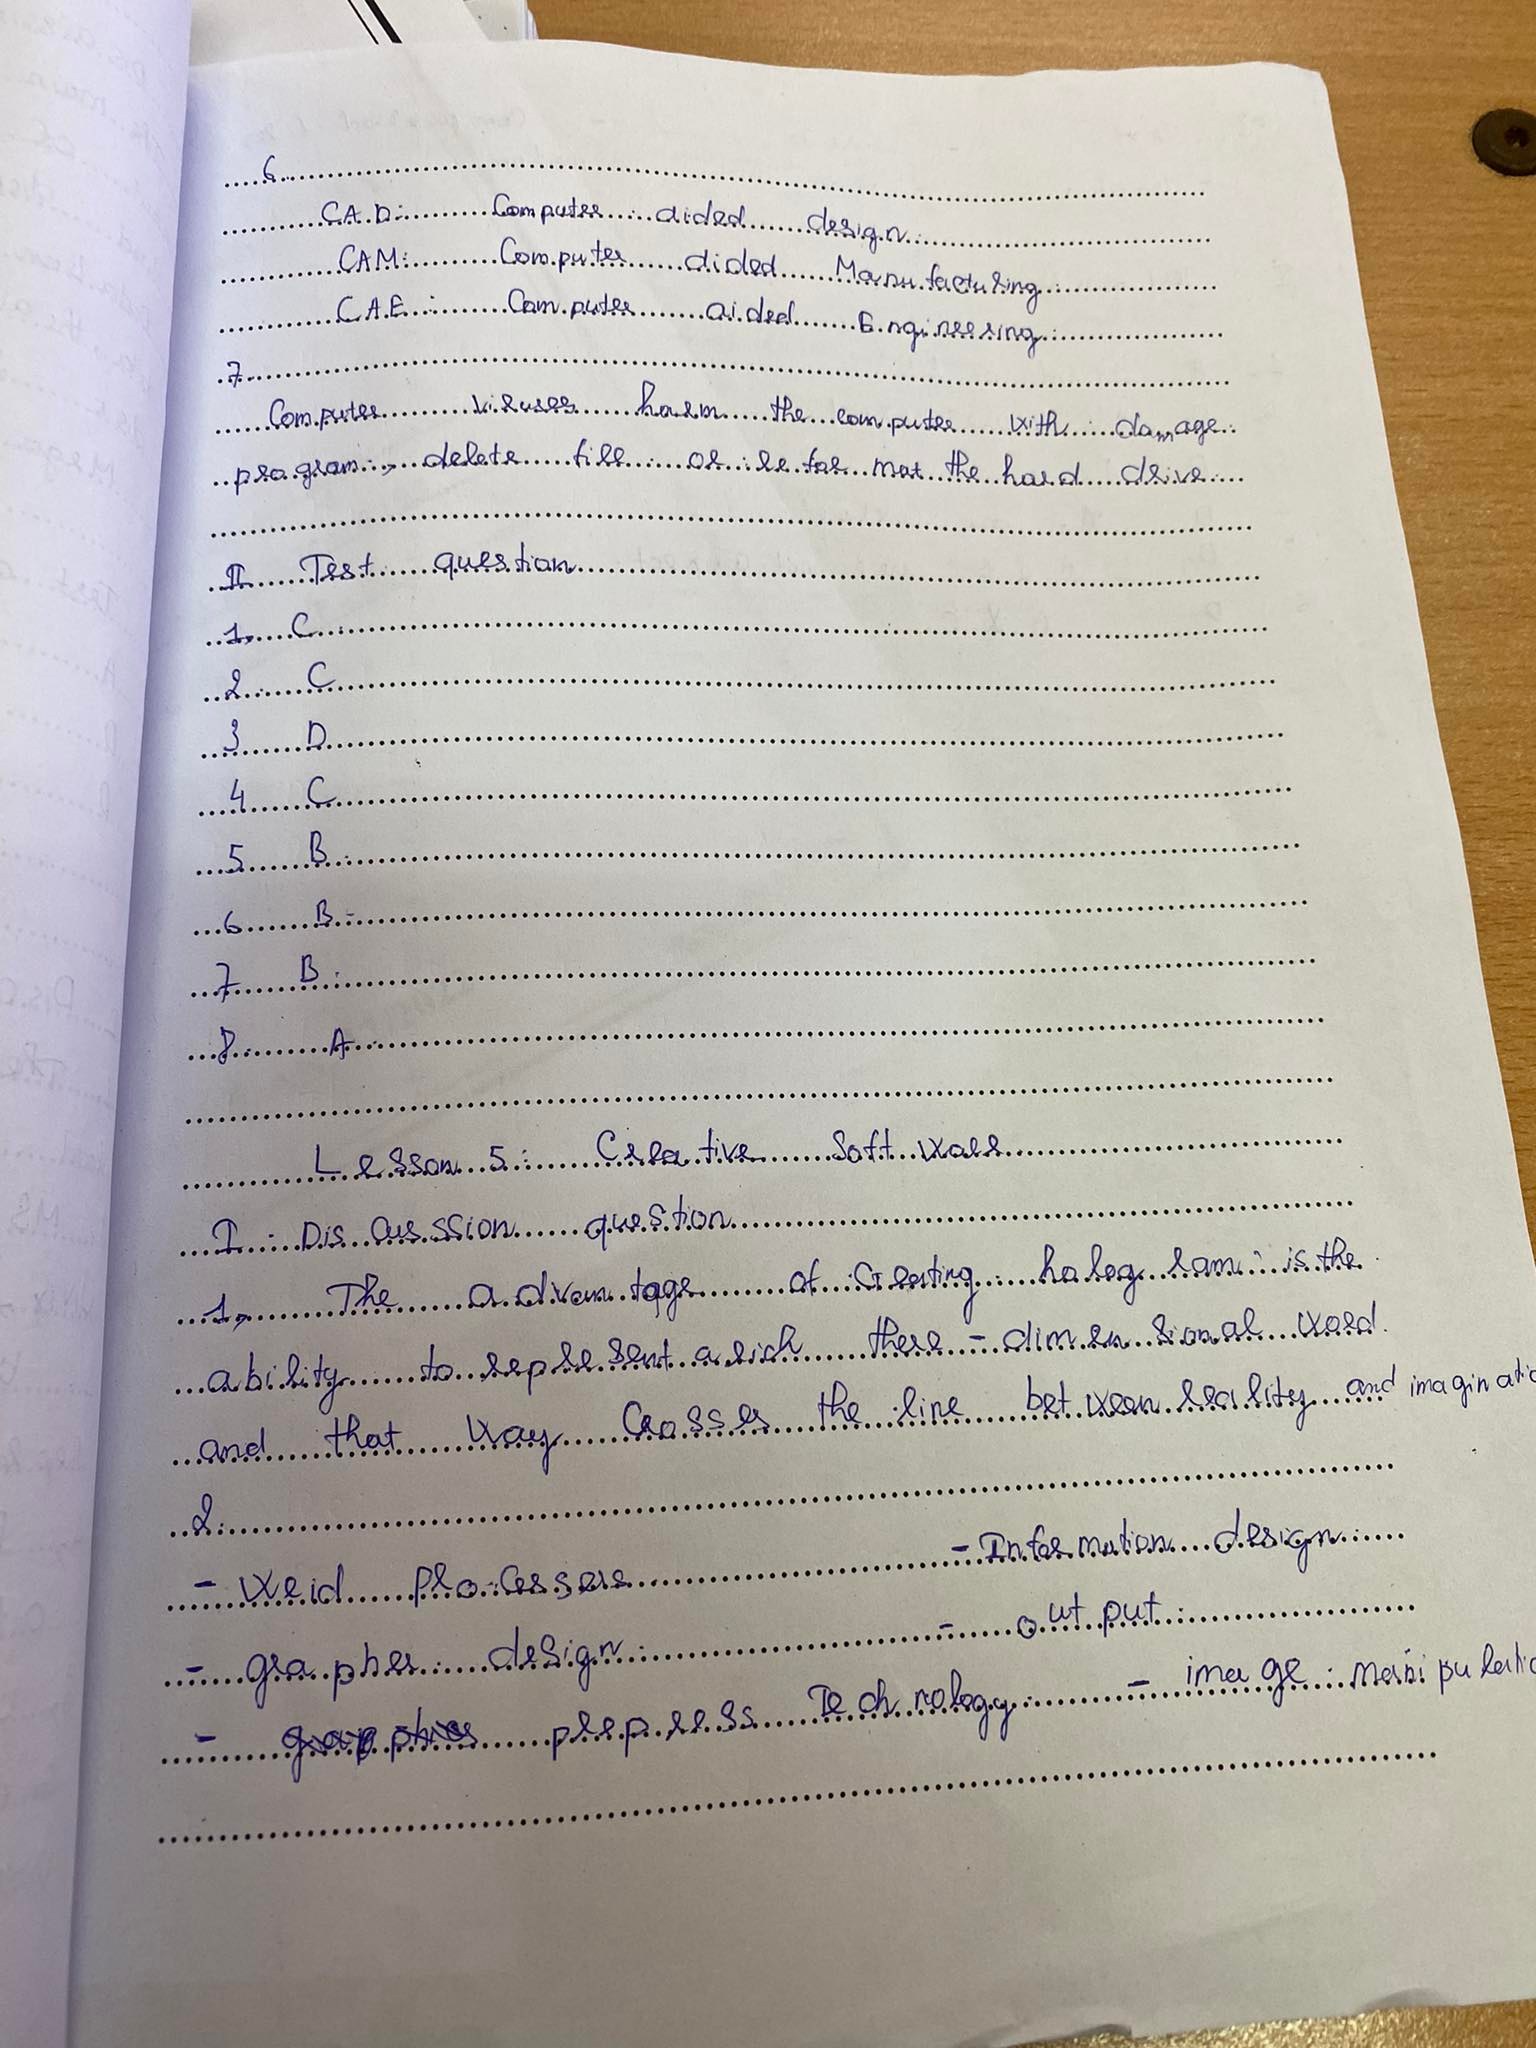 6.
CAD: Computer aided design.
CAM: Computer aided Manufacturing
CAE: Computer aided Engineering.
7.
Computer viruses harm the computer with damage
program, delete file or reformat the hard drive
II Test question
1, C
2. C
3 D
4 C
5 B
6 B
7 B
8 A
Lesson 5: Creative Software
I. Discussion question
1, The advantage of creating hologram is the
ability to represent a rich there-dimensional word
and that way crosses the line between reality and imaginatio
2.
- word processers - Information design
- grapher design - out put
- prepress Technology - image manipulatio